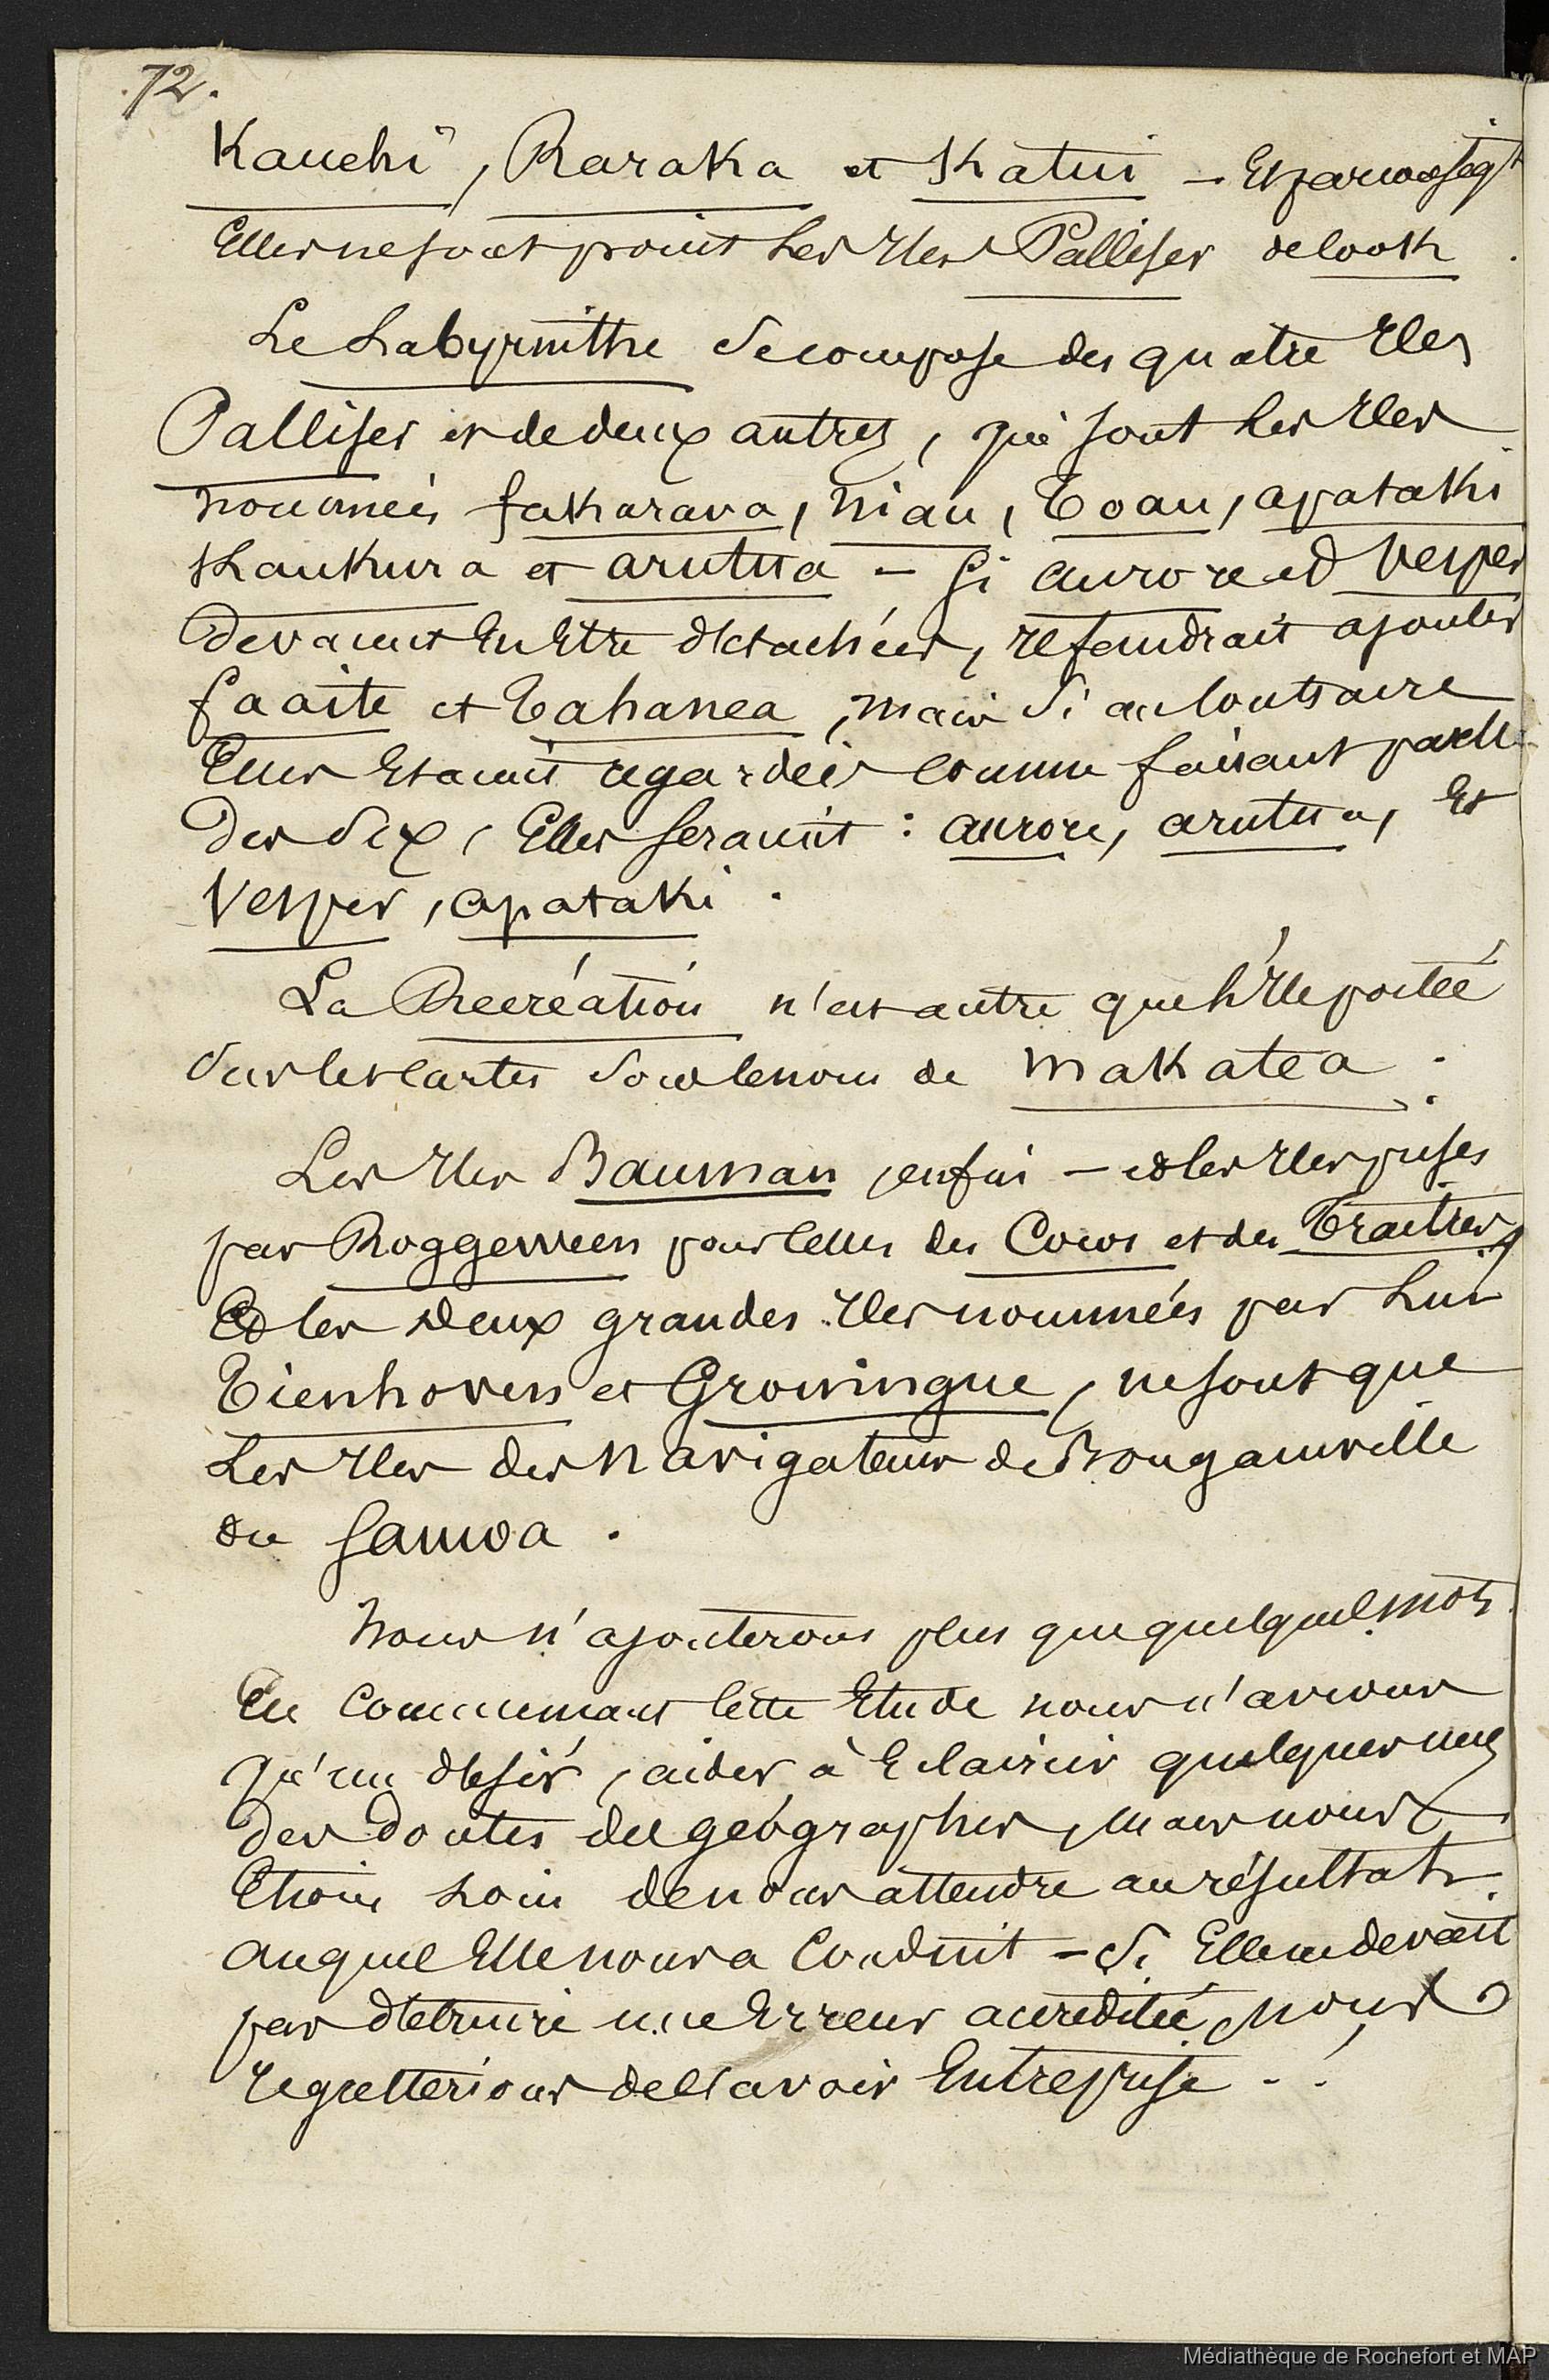 72.
Kauehi, Raraka et Katui - Et par conséqt
Elles ne sont point les Iles Palliser de Cook.
Le Labyrinthe se compose des quatre Iles
Palliser et de deux autres, qui sont les Iles
nommées fakarava, Niau, Toau, apataki
Kaukura et arutua - Si aurore et Vesper
devaient en Etre détachées, il faudrait ajouter
faaite et Tahanea, mais si au Contraire
Elles Etaient regardées comme faisant partie
des Six, Elles seraient : aurore, arutua, Et
Vesper, apataki.
La Récréation n'est autre que l'Ile portée
sur les Cartes sous le nom de Makatea.
Les Iles Bauman, enfin - et les Iles prises
par Roggeween pour Celles des Cocos et des Traitres,
Et les deux grandes Iles nommées par lui
Tienhoven et Groningue, ne sont que
les Iles des Navigateurs de Bougainville
ou Samoa.
Nous n'ajouterons plus que quelques mots.
En Commençant Cette Etude nous n'avions
qu'un désir, aider à Eclaircir quelques uns
des doutes des géographes, mais nous
Etions loin de nous attendre au résultat
auquel Elle nous a Conduit - Si Elle ne devait
pas détruire une Erreur accréditée, nous
regretterions de l'avoir Entreprise.
Médiathèque de Rochefort et MAP